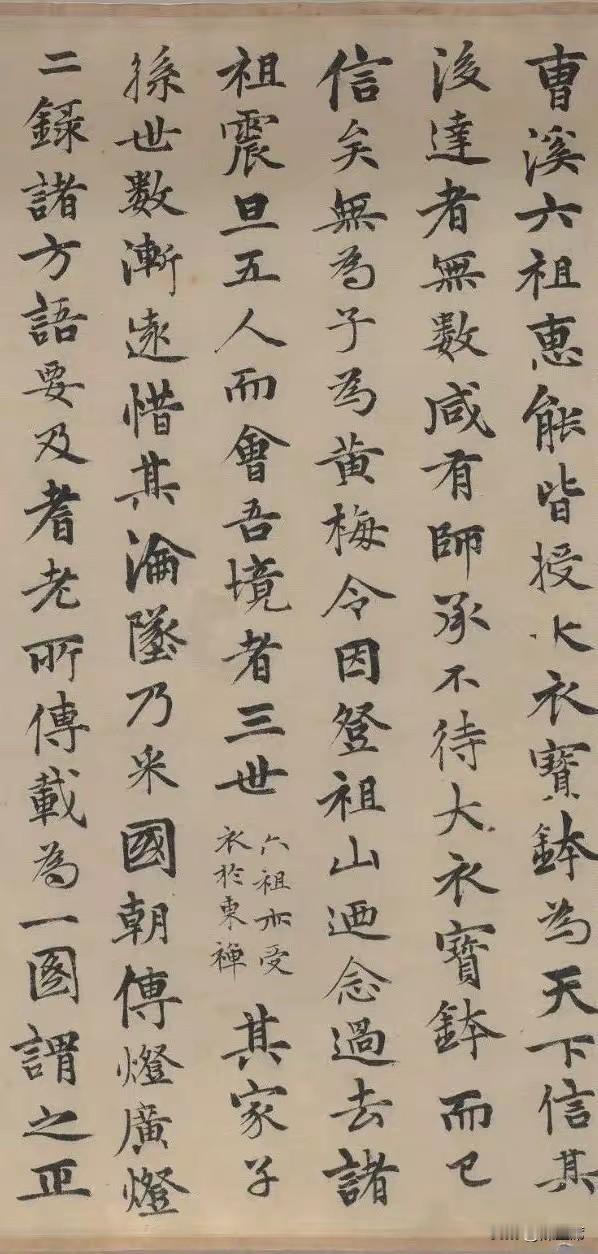 曺溪六祖惠能皆授大衣寳鉢為天下信其
後達者無数咸有師承不待大衣寳鉢而已
信矣無為子為黄梅令因登祖山迺念過去諸
祖震旦五人而會吾境者三世六祖亦受衣於東禅其家子
孫世数漸逺惜其淪墜乃采國朝傳燈廣燈
二録諸方語要及耆老所傳載為一圖謂之正